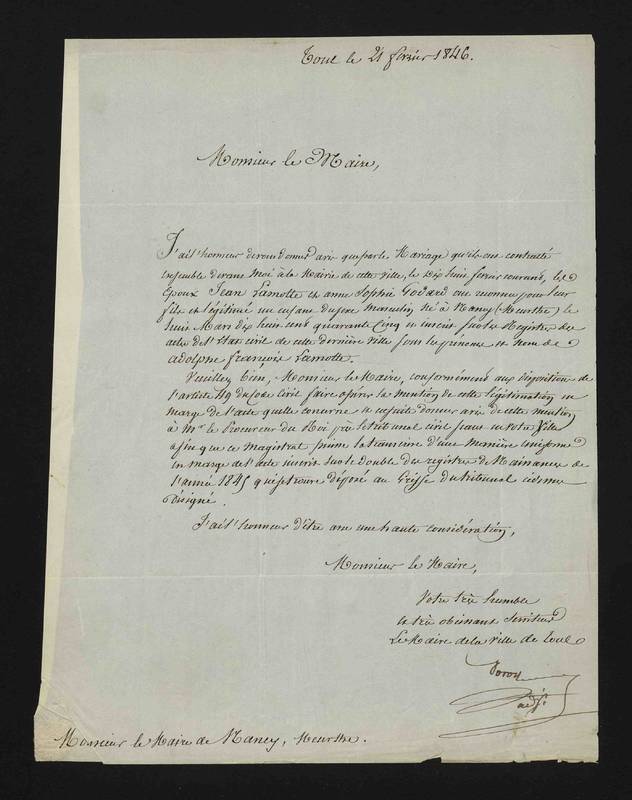 Toul le 21 février 1846.
Monsieur le Maire,
J'ai l'honneur de vous donner avis que par le Mariage qu'ils ont contracté
ensemble devant moi à la Mairie de cette ville, le Dix huit février courant, les
Epoux Jean Lamotte et anne Sophie Godard ont reconnu pour leur
fils et légitimé un enfant du sexe masculin né à Nancy (Meurthe) le
huit Mars dix huit cent quarante Cinq et inscrit sur les Registres des
actes de l'Etat civil de cette dernière ville sous les prénoms et nom de
adolphe françois Lamotte.
Veuillez bien, Monsieur le Maire, conformément aux disposition de
l'article 49 du Code Civil faire opérer la mention de cette légitimation en
marge de l'acte qu'elle concerne et ensuite donner avis de cette mention
à Mr. le Procureur du Roi près le tribunal civil séant en votre Ville
afin que ce magistrat puisse la transcrire d'une manière uniforme
en marge de l'acte inscrit sur le double des registres de Naissances de
l'année 1845 qui se trouve déposé au Greffe du tribunal ci dessus
désigné.
J'ai l'honneur d'être avec une haute considération,
Monsieur le Maire,
Votre très humble
et très obéissant Serviteur
Le Maire de la Ville de Toul
adjt
Monsieur le Maire de Nancy, Meurthe.